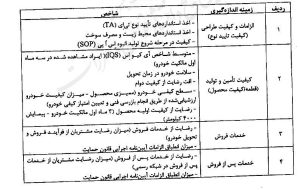 ردیف
زمینه اندازه‌گیری
شاخص
۱
الزامات و کیفیت طراحی
(کیفیت تایید نوع)
- اخذ استانداردهای تأیید نوع تی‌ای (TA)
- اخذ استانداردهای محیط زیست و مصرف سوخت
- کیفیت در مرحله شروع تولید انبوه اس آ پی (SOP)
۲
کیفیت تأمین و تولید
(قطعه/کیفیت محصول)
- متوسط شاخص آی کیو اس (IQS) (ایراد مشاهده شده در سه ماه
اول مالکیت خودرو)
- سلامت خودرو در زمان تحویل
- افت رضایت از کیفیت دوام
- سطح کیفی خودرو (ممیزی محصول - میزان کیفیت خودرو
ارزشیابی‌شده از طریق انجام بازرسی فنی و تعیین امتیاز کیفی خودرو)
- رضایت از کیفیت اولیه محصول (۳ ماه اول مالکیت خودرو - پیمایش
کیلومتر)
۳
خدمات فروش
- رضایت از خدمات فروش (میزان رضایت مشتریان از فرآیند فروش و
تحویل خودرو)
- میزان انطباق الزامات آیین‌نامه اجرایی قانون حمایت
۴
خدمات پس از فروش
- رضایت از خدمات پس از فروش (میزان رضایت مشتریان از خدمات
پس از فروش در شبکه رسمی)
- میزان انطباق الزامات آیین‌نامه اجرایی قانون حمایت